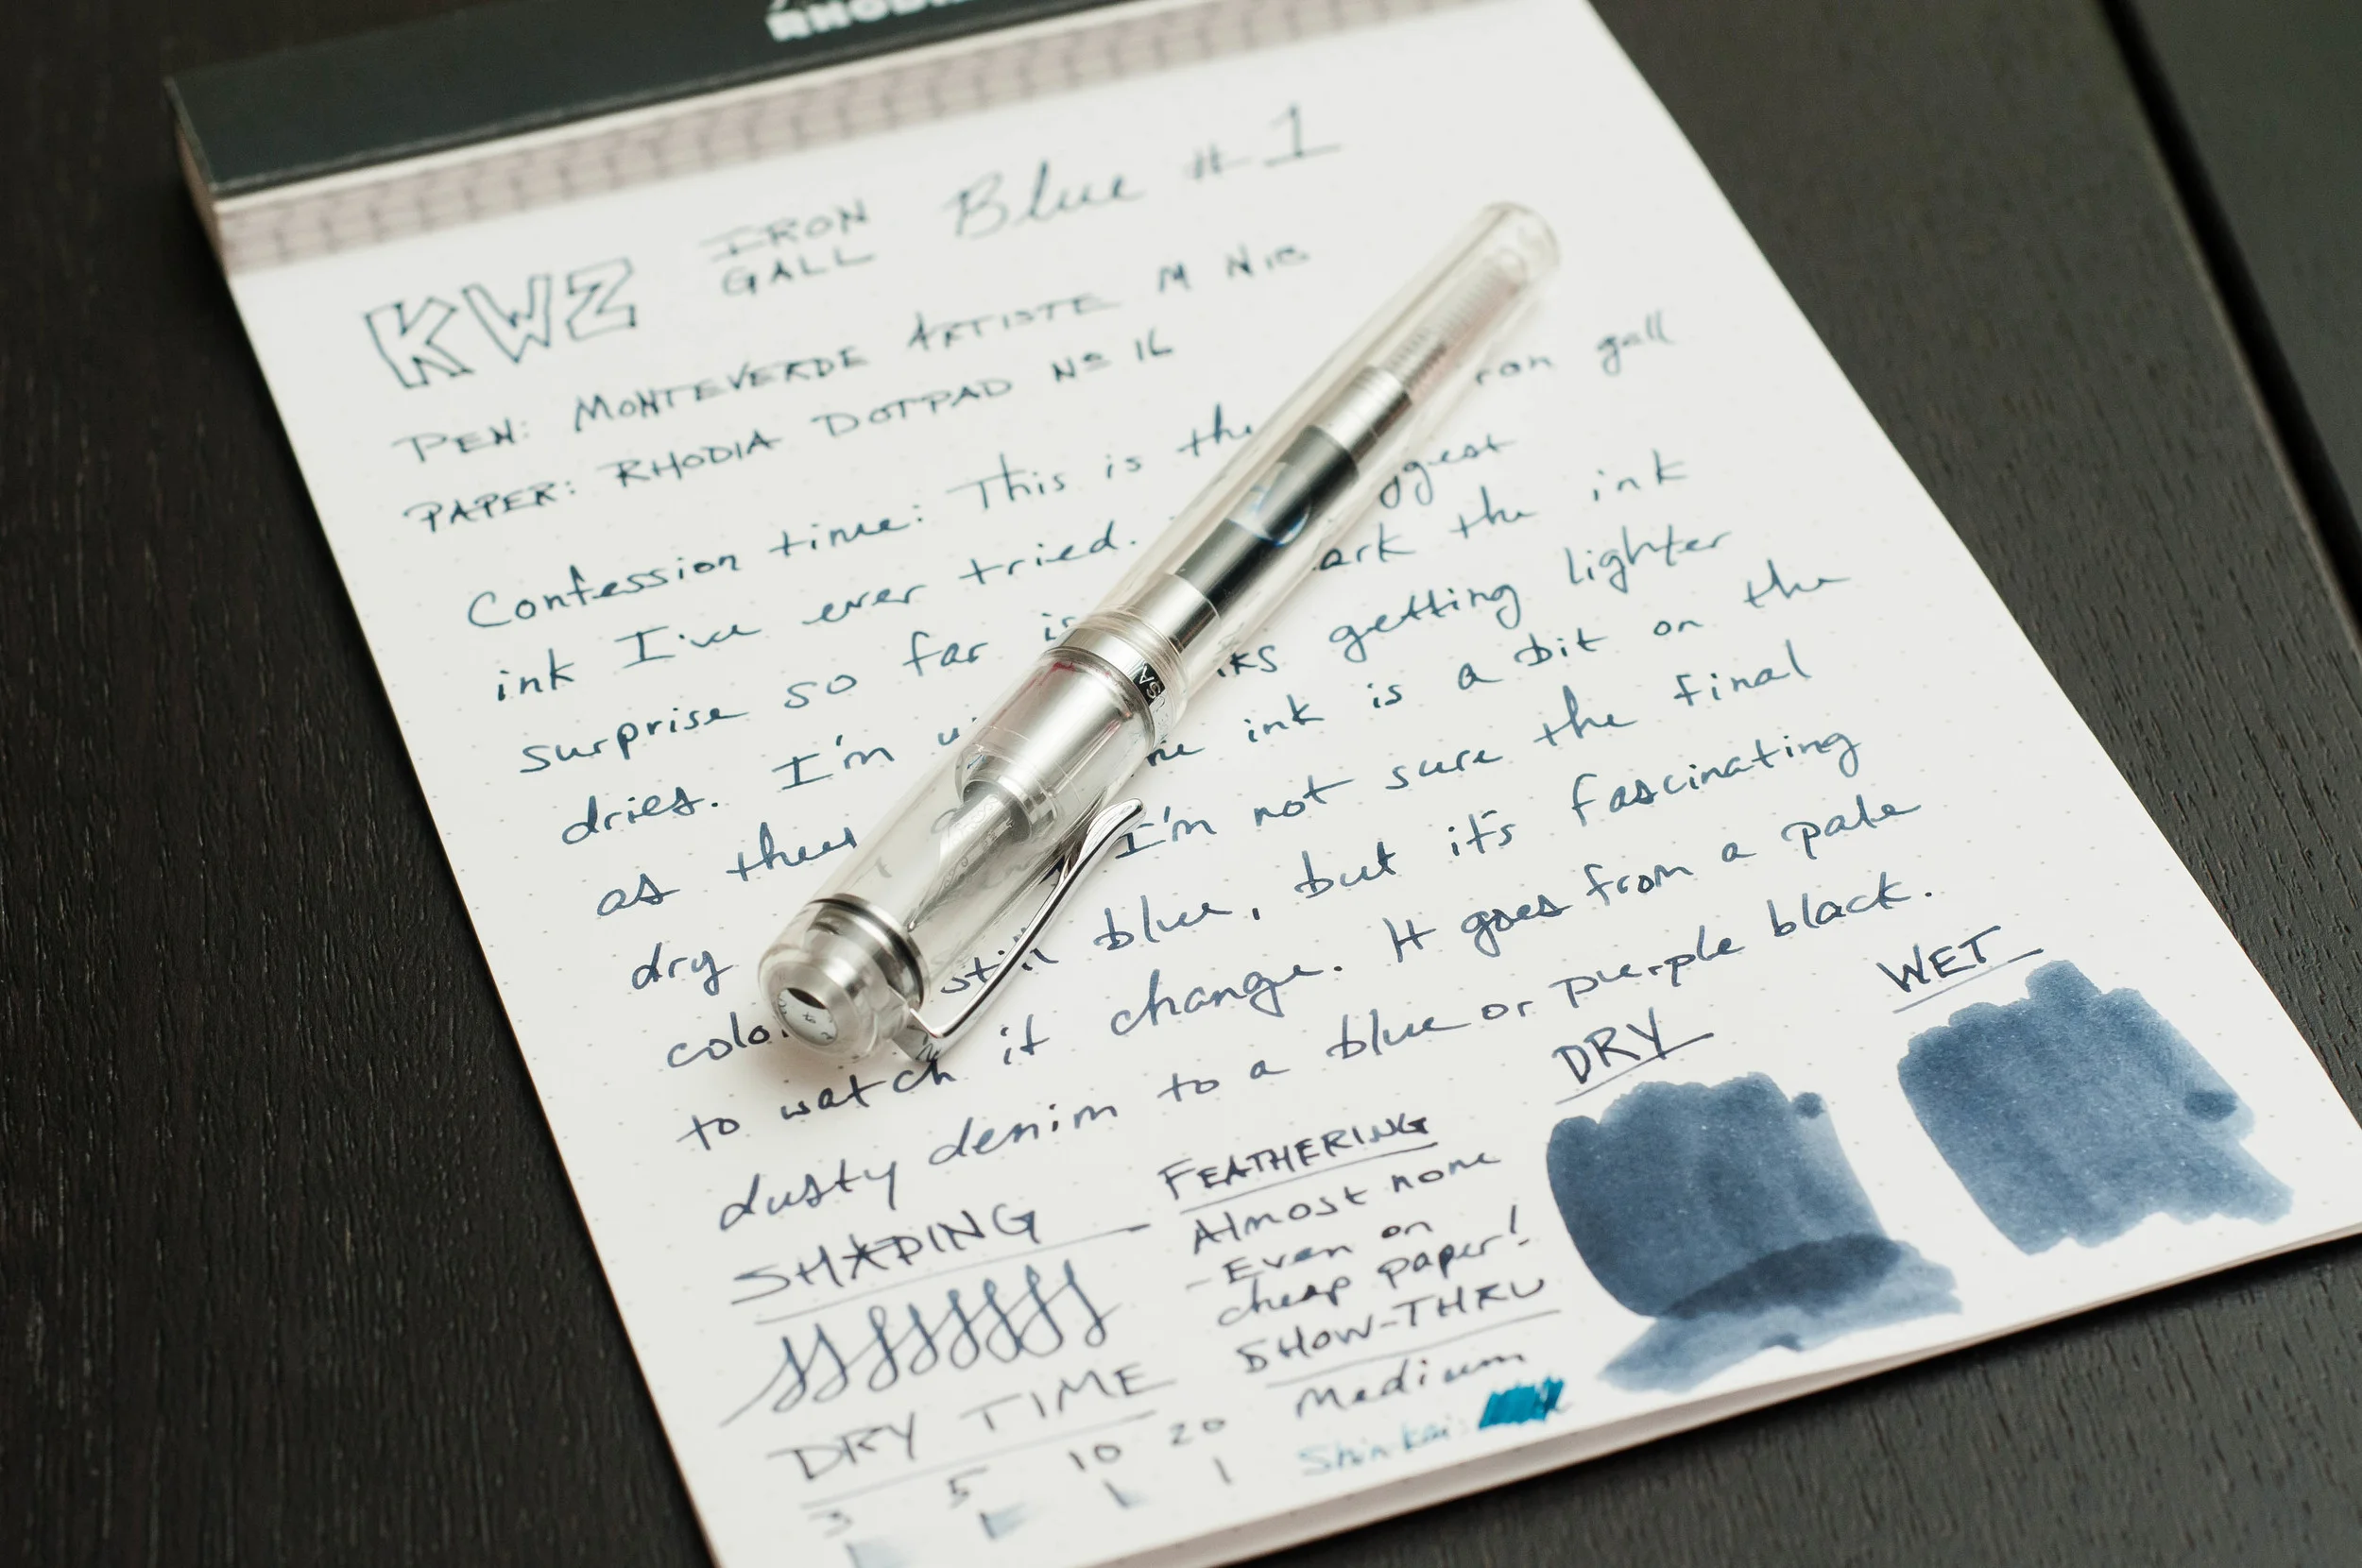 RHODIA
KWZ IRON GALL Blue #1
PEN: MONTEVERDE ARTISTE M NIB
PAPER: RHODIA DOTPAD Nº 16
Confession time: This is the gall
ink I've ever tried.
surprise so far is the ink
dries. I'm getting lighter
as they ink is a bit on the
dry I'm not sure the final
still blue, but it's fascinating
to watch it change. It goes from a pale
dusty denim to a blue or purple black.
WET
DRY
SHADING
FEATHERING
Almost none
- Even on
cheap paper!
SHOW-THRU
Medium
DRY TIME
3 5 10 20
Shinkai: